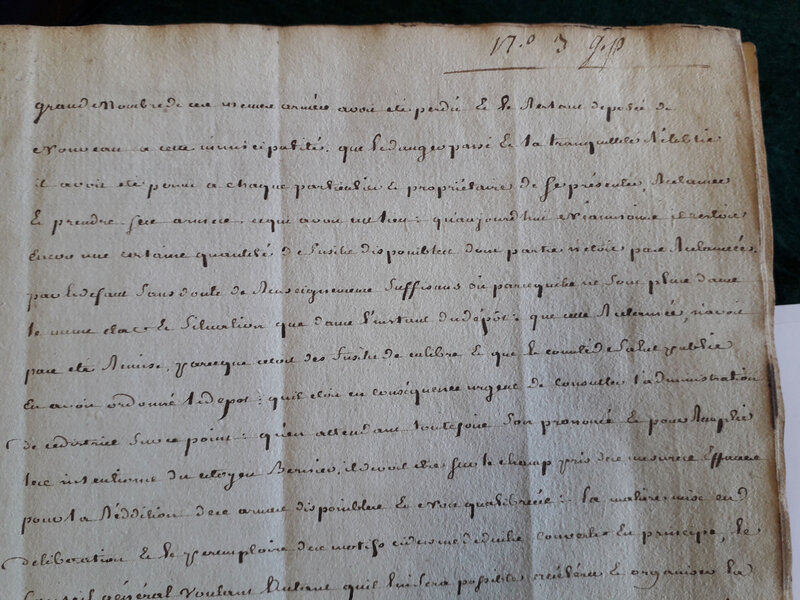 N.o 3
grand Nombre de ces memes armées avoit eté perdu & le Restant deposée de
Nouveau a cette municipalité; que le danger passé Et la tranquillité Rétablie
il avoit eté permis a Chaque particulier & propriétaire de Se présenter, Réclamer
Et prendre Ses armes, ce qui avoit eu lieu; qu'aujourdhui Néanmoins il restoit
Encor une certaine quantité de fusils disponibles dont partie n'etoit pas Réclamées
par le defaut Sans doute de Renseignemens Suffisans ou parcequ'ils ne Sont plus dans
le meme etat & Situation que dans l'instant du dépôt; que cette Réclamée, n'avoit
pas eté Remise, parceque c'etoit des fusils de calibre & que le comité de Salut public
En avoit ordonné le depot; qu'il etoit en conséquence urgent de consulter l'administration
de ce district Sur ce point; qu'en attendant toutefois Son prononcé & pour Remplir
les intentions du citoyen il devoit etre Sur le champ pris des mesures Efficaces
pour la Réddition de ces armes disponibles & Non qualibrées; la matiere mise en
deliberation & le des motifs cidessus déduits convertis En principe, le
Conseil général Voulant autant qu'il lui Sera possible & organiser la